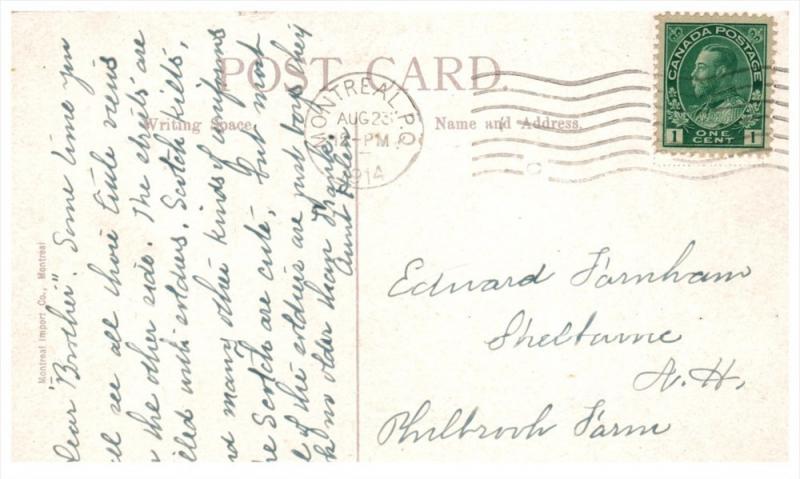 POST CARD.
Writing Space.
Name and Address.
MONTREAL P.Q.
AUG 23
12-PM
1914
CANADA POSTAGE
1 ONE CENT 1
Montreal Import Co., Montreal
Dear "Brother": Some time you
ll see all those little views
the other side. The streets are
lled with soldiers, Scotch kilts,
d many other kinds of uniforms
e Scotch are cute, but most
of the soldiers are just boys they
k no older than Frank.
Aunt
Edward Farnham
Shelburne
N.H.
Philbrook Farm